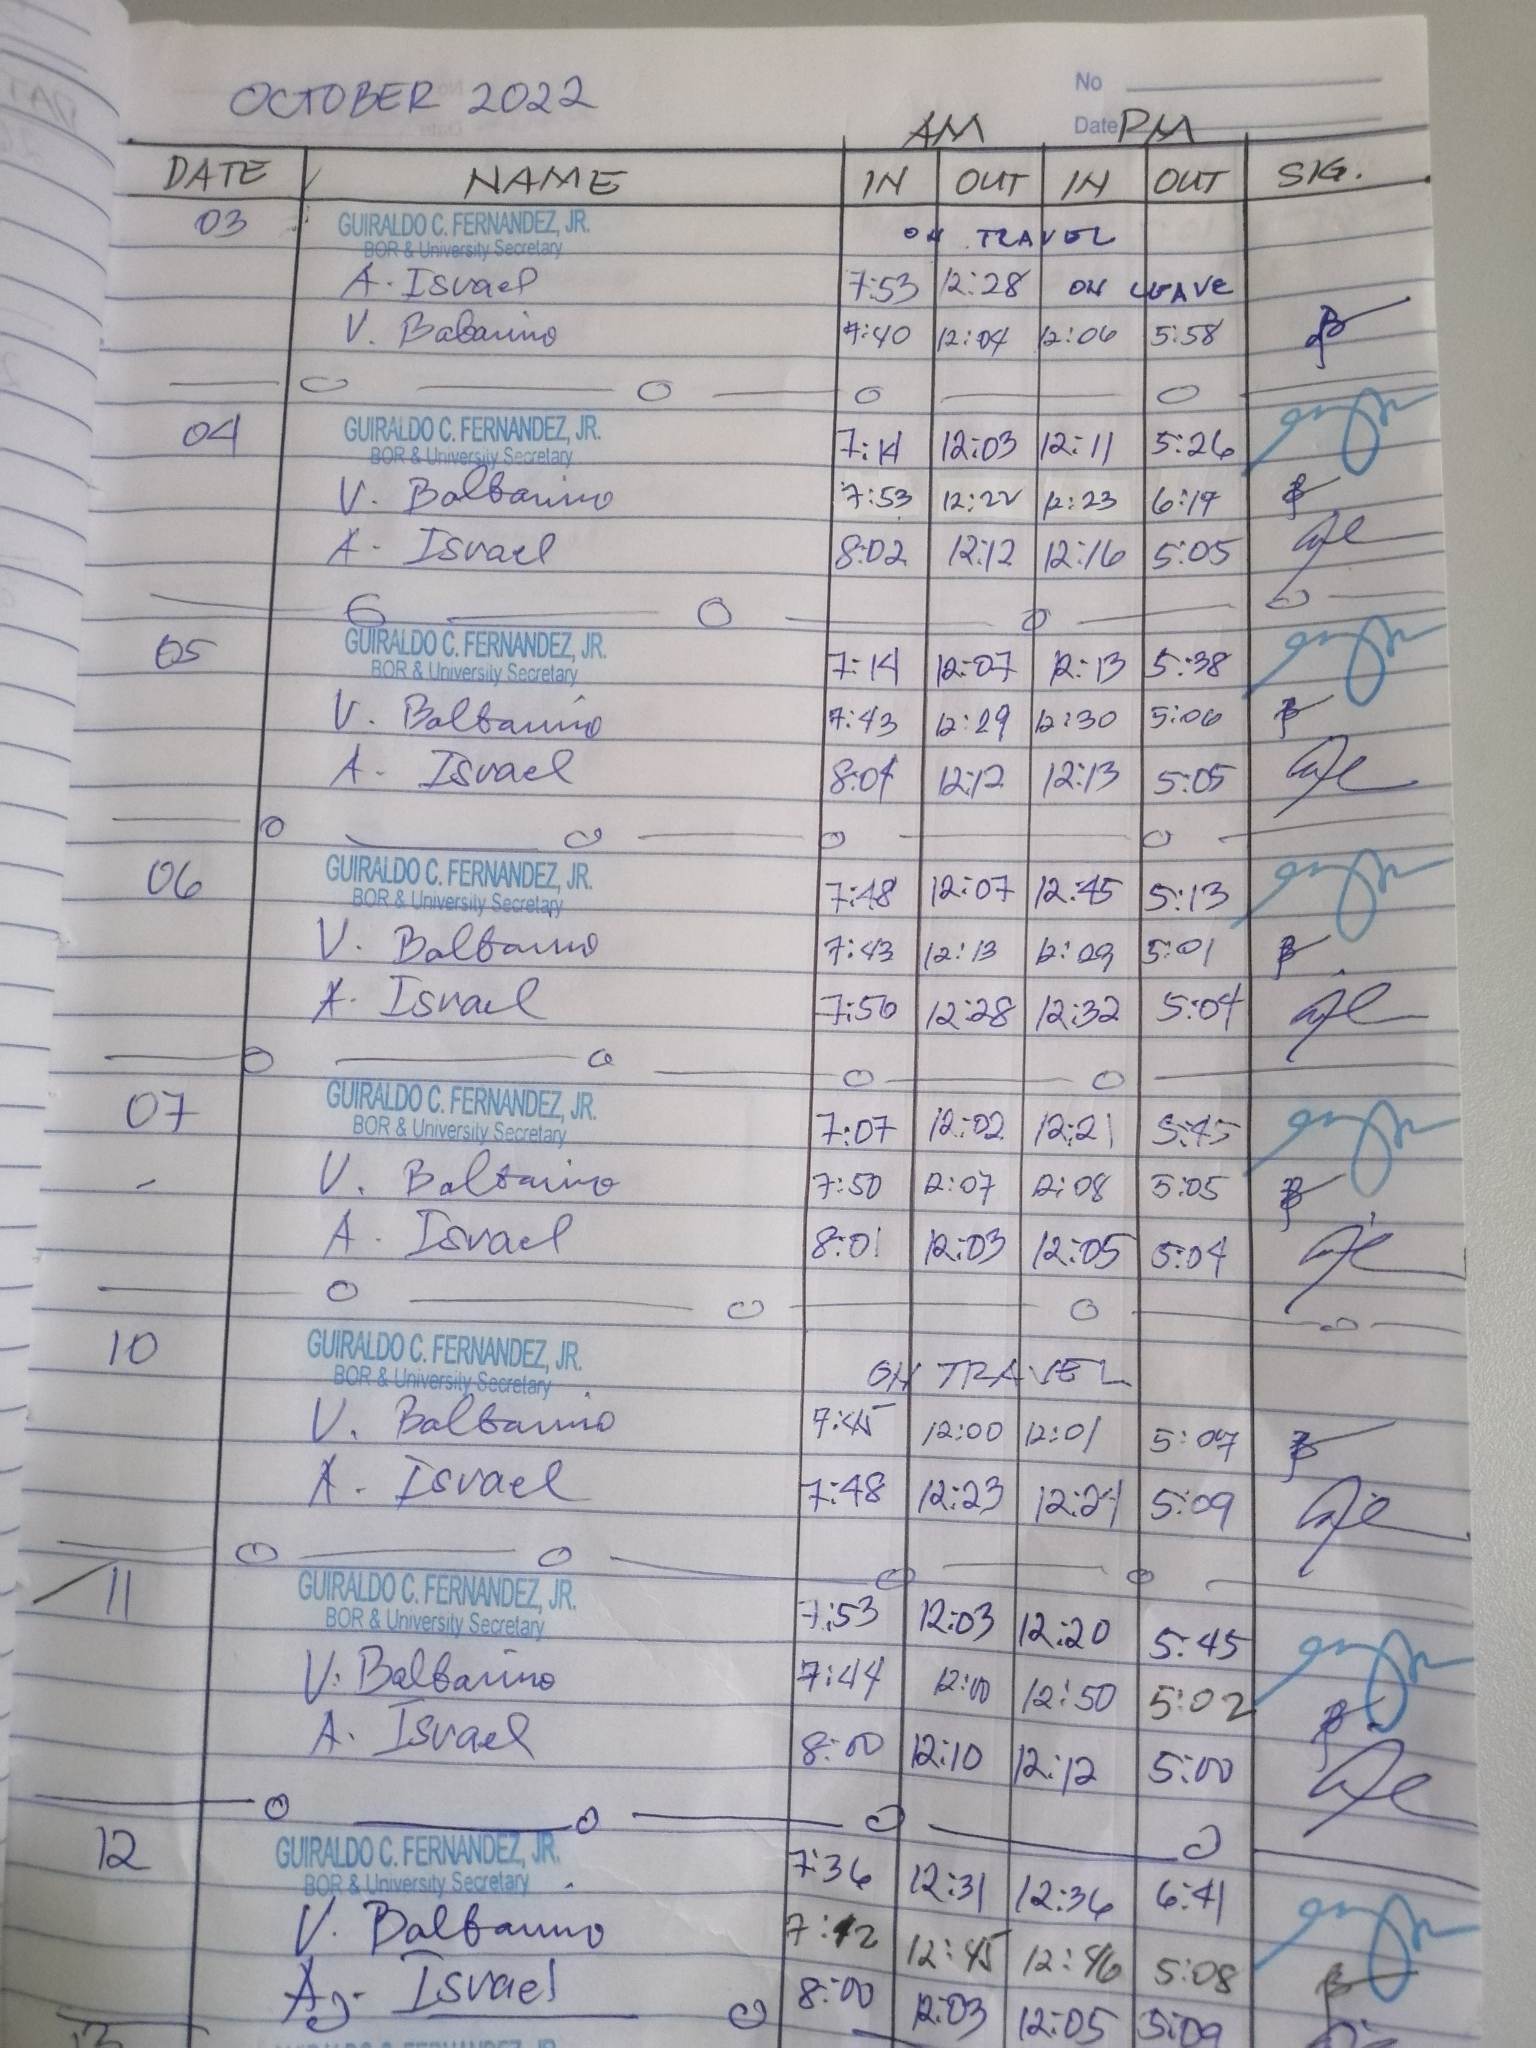 OCTOBER 2022
No
Date
AM PM
DATE NAME IN OUT IN OUT SIG.
03 GUIRALDO C. FERNANDEZ, JR. ON TRAVEL
BOR & University Secretary
A. Israel 7:53 12:28 ON LEAVE
V. Babarino 7:40 12:04 12:06 5:58
04 GUIRALDO C. FERNANDEZ, JR. 7:14 12:03 12:11 5:26
BOR & University Secretary
V. Balbarino 7:53 12:22 12:23 6:17
A. Israel 8:02 12:12 12:16 5:05
05 GUIRALDO C. FERNANDEZ, JR. 7:14 12:07 12:13 5:38
BOR & University Secretary
V. Balbarino 7:43 12:29 12:30 5:06
A. Israel 8:04 12:12 12:13 5:05
06 GUIRALDO C. FERNANDEZ, JR. 7:48 12:07 12:45 5:13
BOR & University Secretary
V. Balbarino 7:43 12:13 5:01
A. Israel 7:50 12:28 12:32 5:04
07 GUIRALDO C. FERNANDEZ, JR. 7:07 12:02 12:21 5:45
BOR & University Secretary
V. Balbarino 7:50 12:07 12:08 5:05
A. Israel 8:01 12:03 12:05 5:04
10 GUIRALDO C. FERNANDEZ, JR. ON TRAVEL
BOR & University Secretary
V. Balbarino 7:45 12:00 12:01 5:07
A. Israel 7:48 12:23 12:24 5:09
11 GUIRALDO C. FERNANDEZ, JR. 7:53 12:03 12:20 5:45
BOR & University Secretary
V. Balbarino 7:44 12:00 12:50 5:02
A. Israel 8:00 12:10 12:12 5:00
12 GUIRALDO C. FERNANDEZ, JR. 7:36 12:31 12:36 6:41
BOR & University Secretary
V. Balbarino 7:42 12:45 12:46 5:08
A. Israel 8:00 12:03 12:05 5:09
13